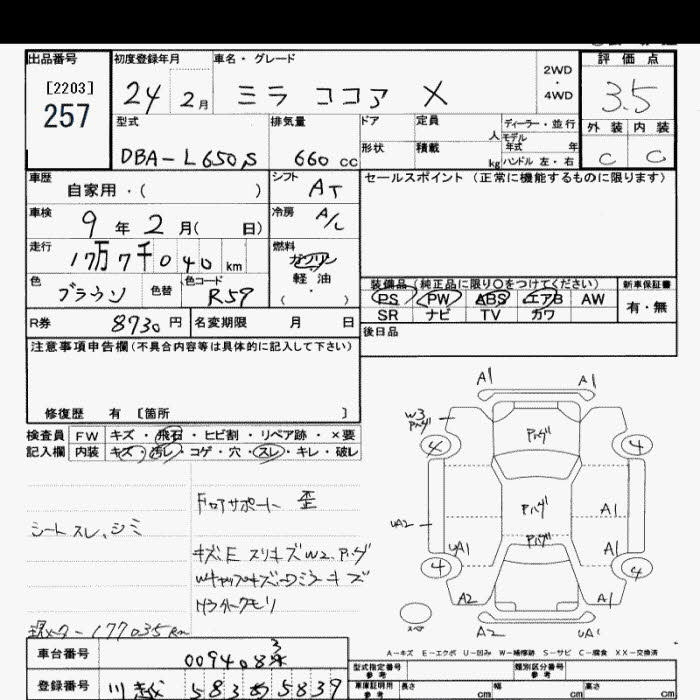 出品番号 初度登録年月 車名・グレード 評価点
[2203] 257
24 2月 ミラ ココア X 2WD・4WD 3.5
型式 排気量 ドア 定員 人 ディーラー・並行
モデル年式 年
形状 積載 kg ハンドル 左・右
外装 内装
DBA-L650S 660 cc C C
車歴 自家用・( ) シフト AT セールスポイント(正常に機能するものに限ります)
車検 9年 2月( 日) 冷房 A/C
走行 17万7千040km 燃料 ガソリン 軽油 ・( )
色 ブラウン 色替 色コード R59
装備品(純正品に限り○をつけてください) 新車保証書
PS PW ABS エアB AW 有・無
SR ナビ TV カワ
R券 8930円 名変期限 月 日
後日品
注意事項申告欄(不具合内容等は具体的に記入して下さい)
修復歴 有 [箇所 ]
検査員 FW キズ・飛石・ヒビ割・リペア跡・×要
記入欄 内装 キズ・汚レ・コゲ・穴・スレ・キレ・破レ
シートスレ、シミ
歪
キズE スリキズW2、Pハゲ
現メーター177035km
A1 A1
W3 Pハゲ
Pハゲ
4 4
Pハゲ A1
UA2
Pハゲ
UA1 A1
4 4
A2 A1
スペア
A2 UA1
A-キズ E-エクボ U-凹み W-補修跡 S-サビ C-腐食 XX-交換済
車台番号 型式指定番号 参考 類別区分番号 参考
登録番号 川越 583 あ 5839 車庫証明用 参考 長さ cm 幅 cm 高さ cm